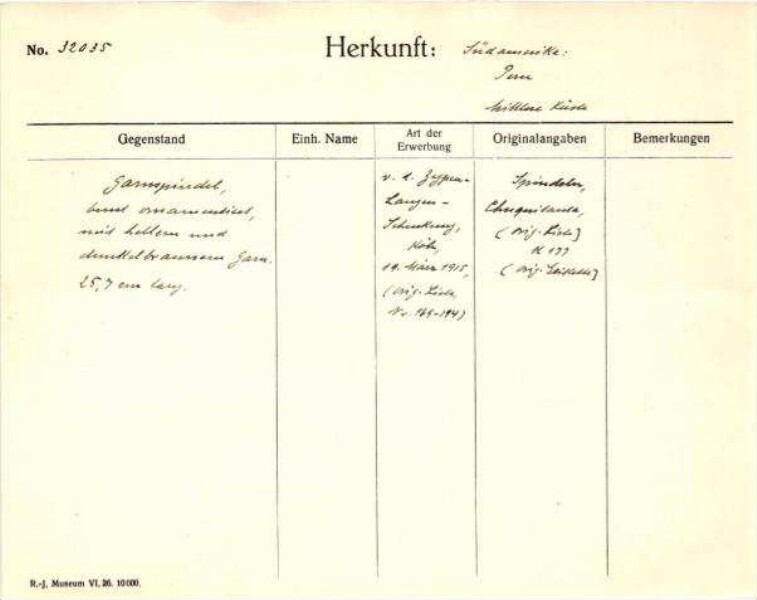 No. 32035
Herkunft: Südamerika:
Peru
Mittlere Küste
Gegenstand
Einh. Name
Art der
Erwerbung
Originalangaben
Bemerkungen
Garnspindel,
bunt ornamentiert,
mit hellem und
dunkelbraunem Garn.
25,7 cm lang.
v. d. Zypen-
Langen-
Schenkung,
Köln,
19. März 1915,
(orig. Liste
No. 164-194)
Spindeln,
Chuquitanta,
(orig. Liste)
K 177
(orig. Etikette)
R.-J. Museum VI. 26. 10000.